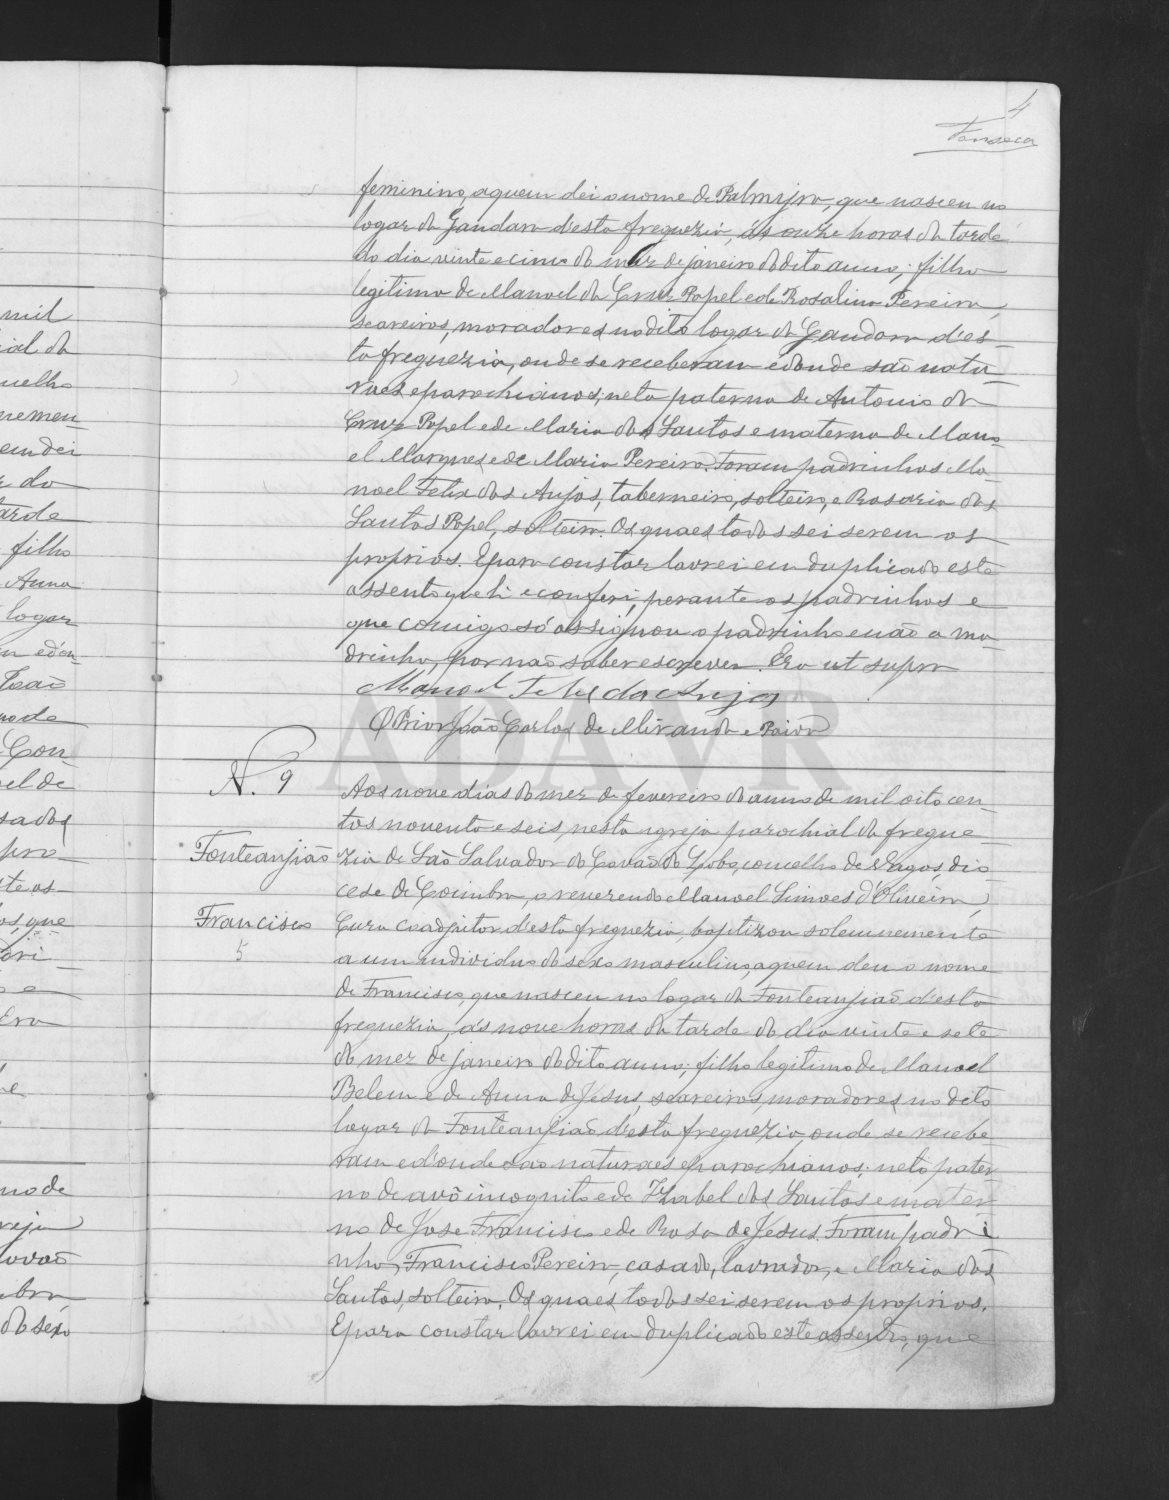 4
Fonseca
feminino, aquem dei o nome de Palmyra, que nasceu no
logar da Gandara d'esta freguezia, ás onze horas da tarde
do dia vinte e cinco do mez de janeiro do dito anno, filha
legitima de Manoel da Cruz Papel e de Rosalina Pereira,
seareiros, moradores no dito logar da Gandara d'es-
ta freguezia, onde se receberam e d'onde são natu-
raes e parochianos; neta paterna de Antonio da
Cruz Papel e de Maria dos Santos e materna de Mano-
el Marques e de Maria Pereira. Foram padrinhos Ma-
noel Felix dos Anjos, taberneiro, solteiro, e Rosaria dos
Santos Papel, solteira. Os quaes todos sei serem os
proprios. E para constar lavrei em duplicado este
assento que li e conferi, perante os padrinhos e
que comigo só assignou o padrinho e não a ma-
drinha, por não saber escrever. Era ut supra
Manoel Felix dos Anjos
O Prior João Carlos de Miranda e Paiva
N. 9
Aos nove dias do mez de fevereiro do anno de mil oito cen-
tos noventa e seis, nesta igreja parochial da fregue-
Fonteanjião
zia de São Salvador do Covão do Lobo, concelho de Vagos, dio
cese de Coimbra, o reverendo Manoel Simoes d'Oliveira,
Francisco
Cura coadjutor d'esta freguezia, baptizou solemnemente
5
a um individuo do sexo masculino, aquem deu o nome
de Francisco, que nasceu no logar da Fonteanjião d'esta
freguezia, ás nove horas da tarde do dia vinte e sete
do mez de janeiro do dito anno, filho legitimo de Manoel
Belem e de Anna de Jesus, seareiros, moradores no dito
logar da Fonteanjião d'esta freguezia, onde se recebe-
ram e d'onde são naturaes e parochianos; neto pater-
no de avô incognito e de Izabel dos Santos e mater-
no de Jose Francisco e de Rosa de Jesus. Foram padri
nho, Francisco Pereira, casado, lavrador, e Maria dos
Santos, solteira. Os quaes todos sei serem os proprios.
E para constar lavrei em duplicado este assento, que
mil
ial da
celho
nemen-
em dei
do
arde
filho
Anna
logar
Leão
Con-
el de
sados
pro-
te os
os, que
e
Era
no de
reja
ovão
bra
do sexo
ADAVR